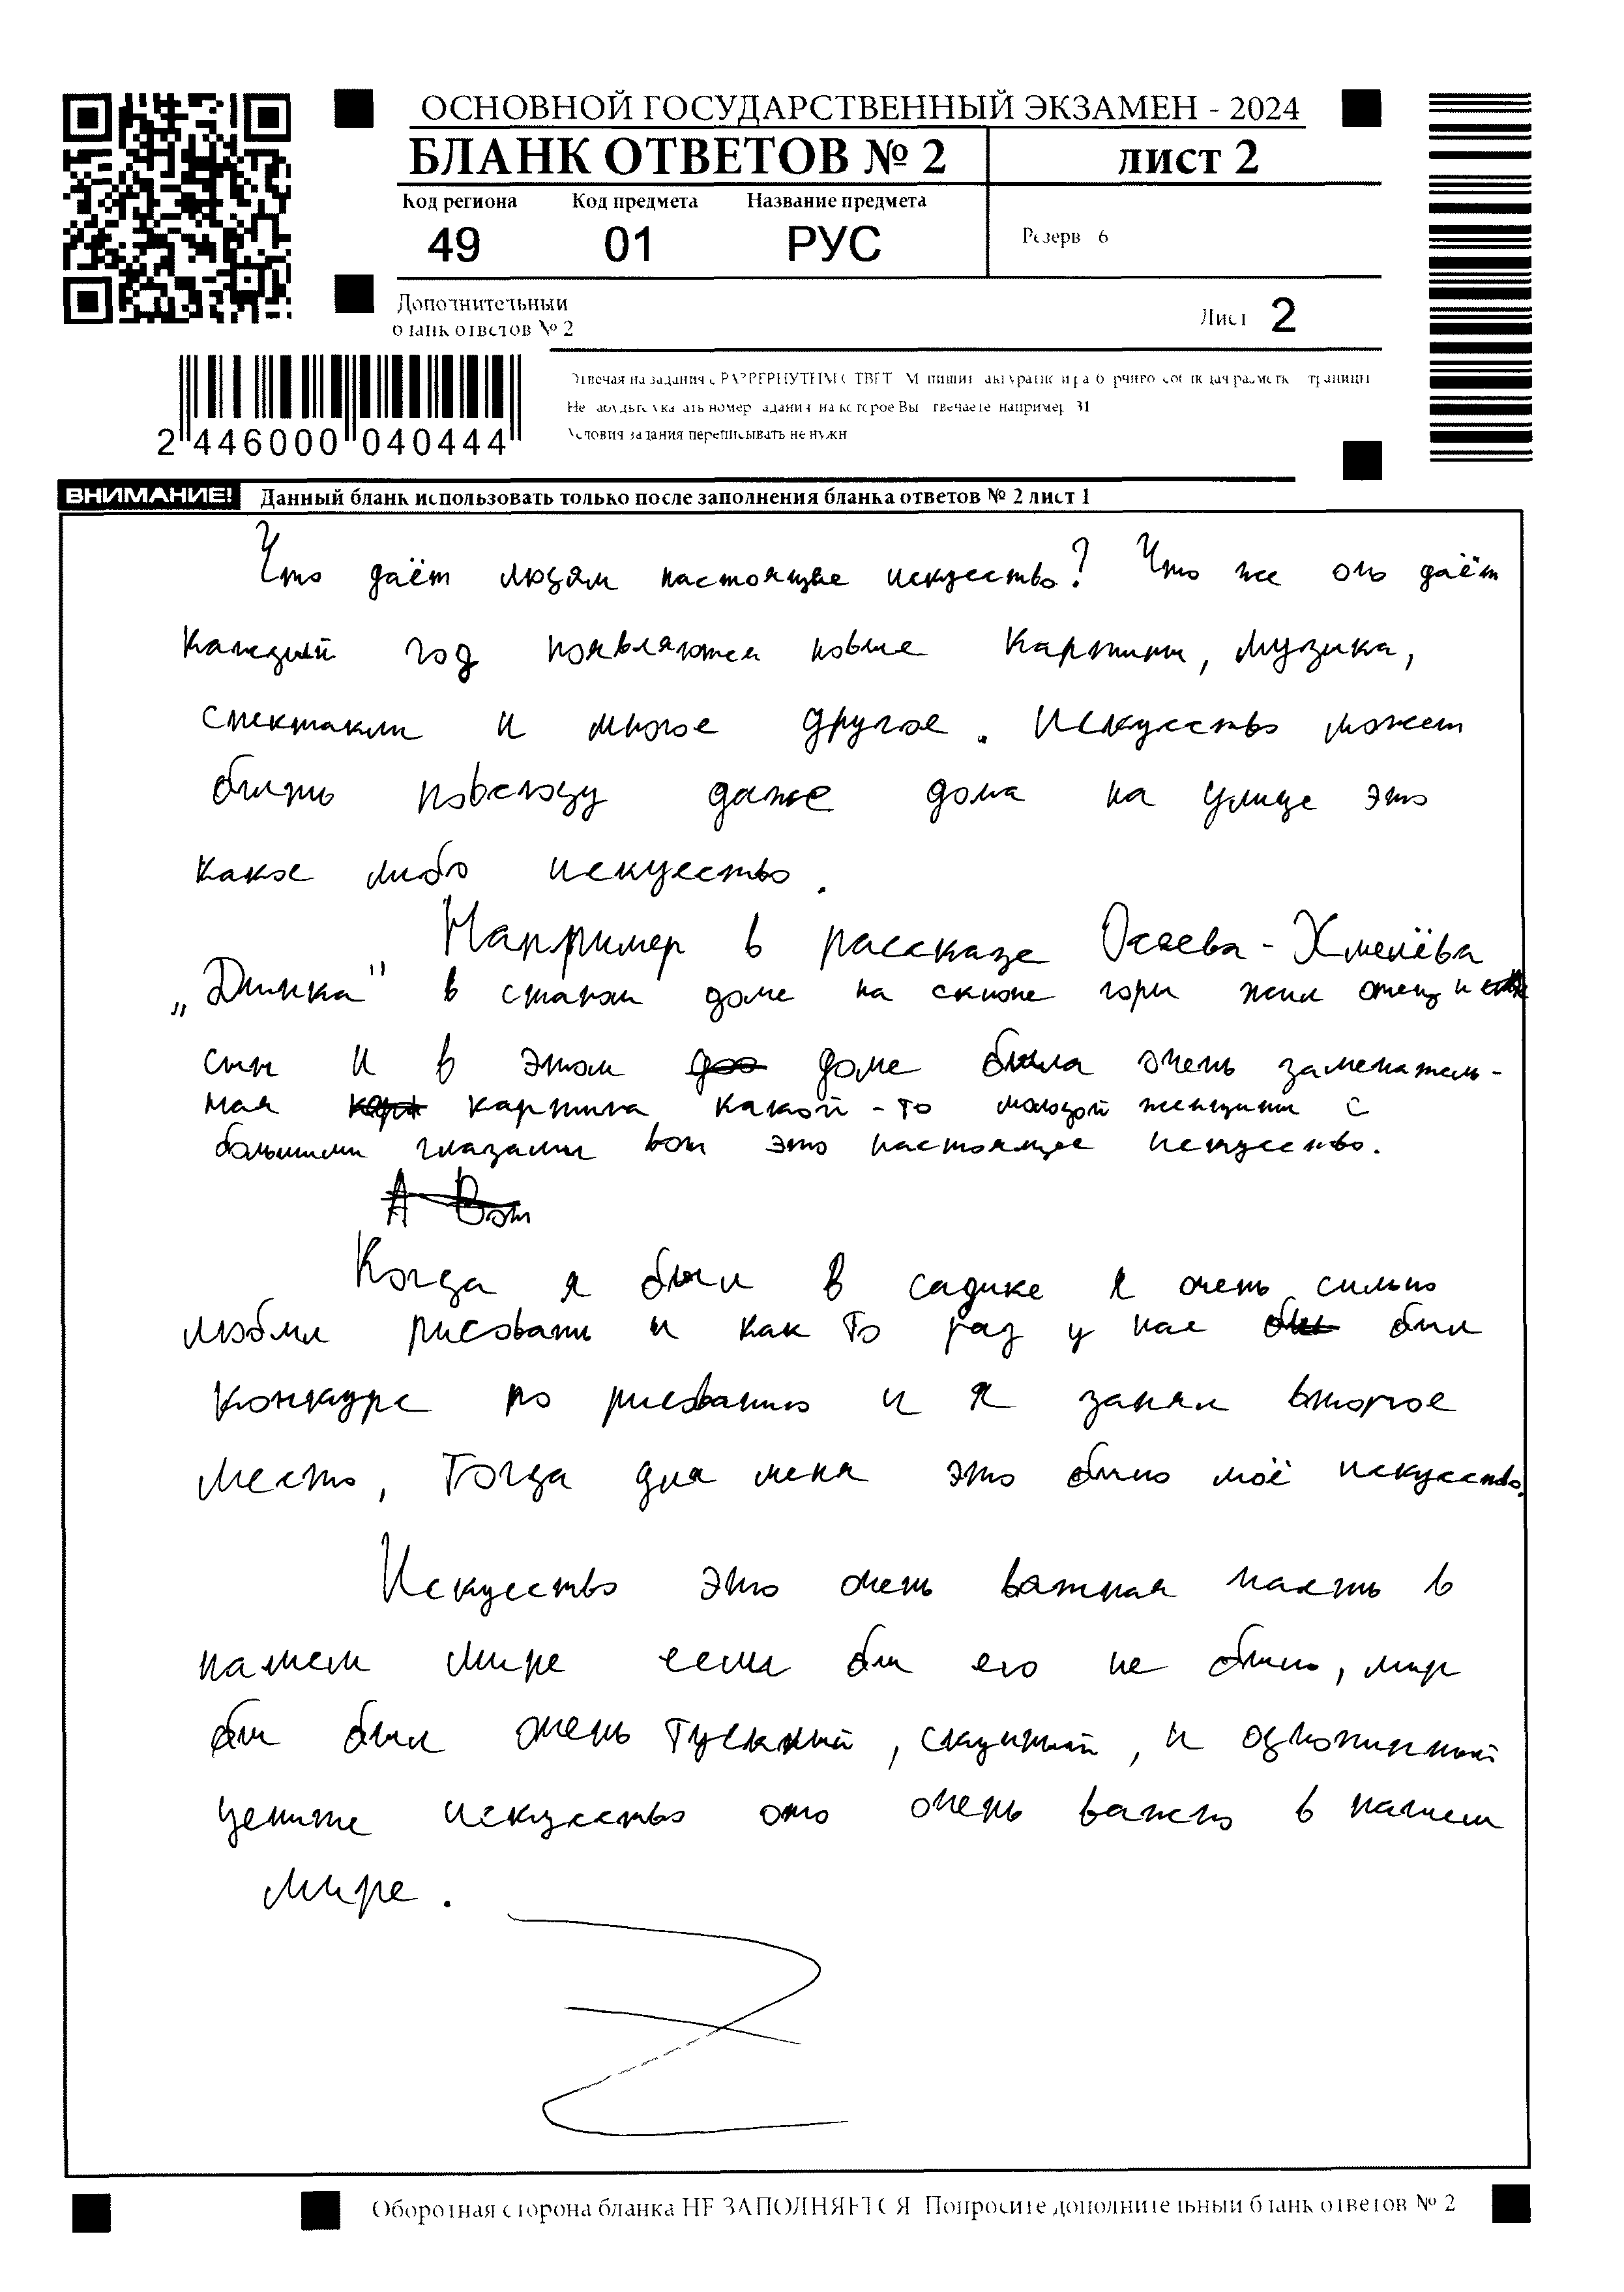 ОСНОВНОЙ ГОСУДАРСТВЕННЫЙ ЭКЗАМЕН - 2024
БЛАНК ОТВЕТОВ № 2
лист 2
Код региона Код предмета Название предмета
49 01 РУС
Резерв 6
Дополнительный
бланк ответов № 2
Лист 2
Отвечая на задания с РАЗВЕРНУТЫМ ОТВЕТОМ пишите аккуратно и разборчиво соблюдая разметку страницы
Не забудьте указать номер задания на которое Вы отвечаете например 31
Условия задания переписывать не нужно
2 446000 040444
ВНИМАНИЕ! Данный бланк использовать только после заполнения бланка ответов № 2 лист 1
Что даёт людям настоящие искусство? Что же оно даёт
каждый год появляются новые картины, музыка,
спектакли и многое другое. Искусство может
быть повсюду даже дома на улице это
какое либо искусство.
Например в рассказе Осеева-Хмелёва
„Динка" в старом доме на склоне горы жил отец и
сын и в этом доме была очень замечатель-
ная картина какой-то молодой женщины с
большими глазами вот это настоящее искусство.
А Вот
Когда я был в садике я очень сильно
любил рисовать и как то раз у нас был
конкурс по рисованию и я занял второе
место, тогда для меня это было моё искусство.
Искусство это очень важная часть в
нашем мире если бы его не было, мир
бы был очень тусклый, скучный, и однотипный
цените искусство оно очень важно в нашем
мире.
Оборотная сторона бланка НЕ ЗАПОЛНЯЕТСЯ Попросите дополнительный бланк ответов № 2